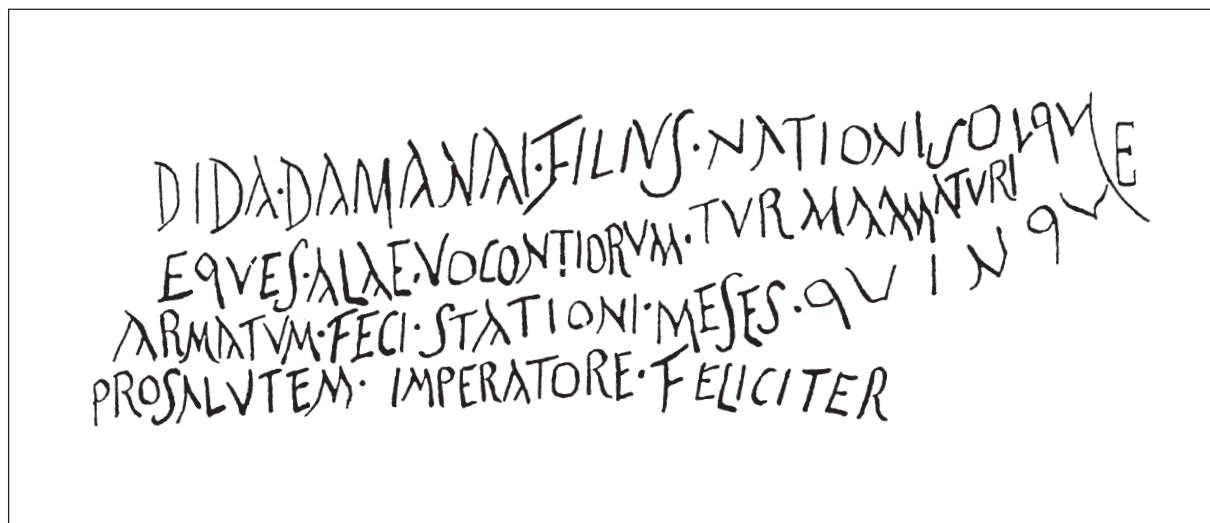 DIDA·DAMANAI·FILIVS·NATIONISOLQV
EQVES·ALAE·VOCONTIORVM·TVRMAMATVRI
ARMATVM·FECI·STATIONI·MESES·QVINQVE
PROSALVTEM· IMPERATORE·FELICITER